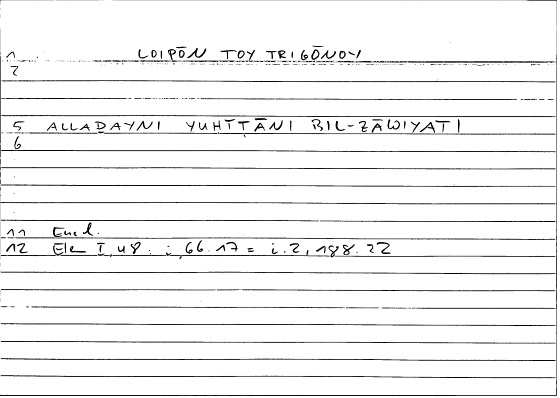 1 LOIPŌN TOY TRIGŌNOY
2
5 ALLADAYNI YUHĪṬĀNI BIL-ZĀWIYATI
6
11 Eucl.
12 Ele I, 48 : i, 66.17 = i.2, 188.22